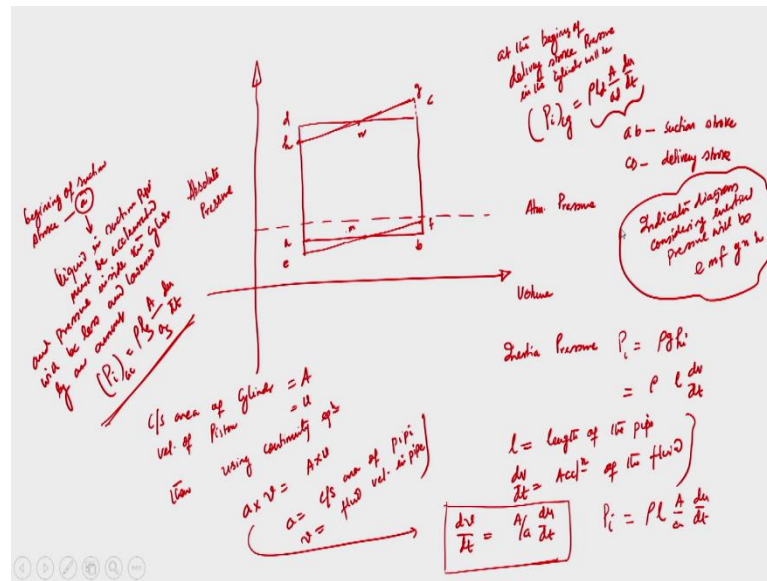 at the begining of
delivery stroke pressure
in the cylinder will be
(Pi)g = ρ ld A/ad du/dt
ab - suction stroke
cd - delivery stroke
Indicator diagram
considering inertial
pressure will be
e m f g n h
Absolute
Pressure
Atm. Pressure
Volume
d
h
g
c
n
a
e
m
f
b
begining of suction
stroke - a
liquid in suction pipe
must be accelerated
and pressure inside the cylinder
will be less and lowered
by an amount
(Pi)ac = ρ ls A/as du/dt
C/S area of cylinder = A
vel. of Piston = u
then using continuity eqn
a × v = A × u
a = C/S area of pipe
v = fluid vel. in pipe
Inertia Pressure Pi = ρghi
= ρ l dv/dt
l = length of the pipe
dv/dt = Accln of the fluid
dv/dt = A/a du/dt
Pi = ρ l A/a du/dt